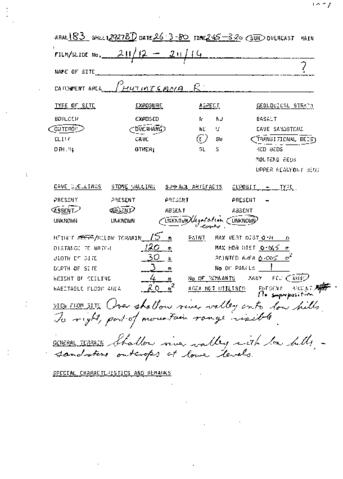 AREA 183 SHEET 2927BD DATE 26-3-80 TIME 245-320 SUN OVERCAST RAIN
FILM/SLIDE No. 211/12 - 211/14
NAME OF SITE ?
CATCHMENT AREA PHUTHIATSANA R
TYPE OF SITE EXPOSURE ASPECT GEOLOGICAL STRATA
BOULDER EXPOSED N NW BASALT
OUTCROP OVERHANG NE W CAVE SANDSTONE
CLIFF CAVE E SW TRANSITIONAL BEDS
OTHER: OTHER: SE S RED BEDS
MOLTENO BEDS
UPPER BEAUFORT BEDS
CAVE DWELLINGS STONE WALLING SURFACE ARTEFACTS DEPOSIT - TYPE
PRESENT PRESENT PRESENT PRESENT -
ABSENT ABSENT ABSENT ABSENT
UNKNOWN UNKNOWN UNKNOWN Vegetation cover. UNKNOWN
HEIGHT ABOVE/BELOW TERRAIN 15 m PAINT MAX VERT DIST 0.11 m
DISTANCE TO WATER 120 m MAX HOR DIST 0.065 m
WIDTH OF SITE 30 m PAINTED AREA 0.005 m²
DEPTH OF SITE 3 m No OF PANELS 1
HEIGHT OF CEILING 4 m No OF REMNANTS MANY FEW NONE
HABITABLE FLOOR AREA 20 m² AREA NOT UTILISED PRESENT ABSENT
No superposition
VIEW FROM SITE Over shallow river valley onto low hills
To right, part of mountain range visible.
GENERAL TERRAIN Shallow river valley with low hills -
sandstone outcrops at low levels.
SPECIAL CHARACTERISTICS AND REMARKS